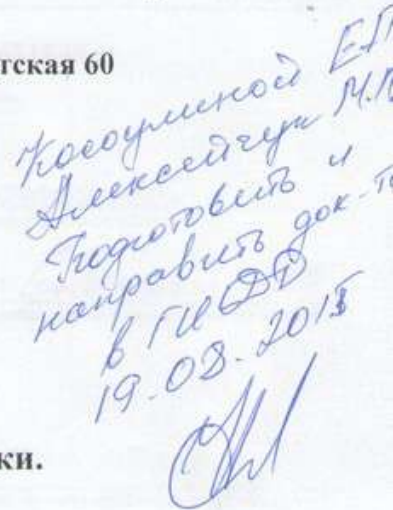 тская 60
Косоуминой Е.П
Алексейчук М.П
Подготовить и
направить док-т
в ГИБДД
19.08.2015
ки.